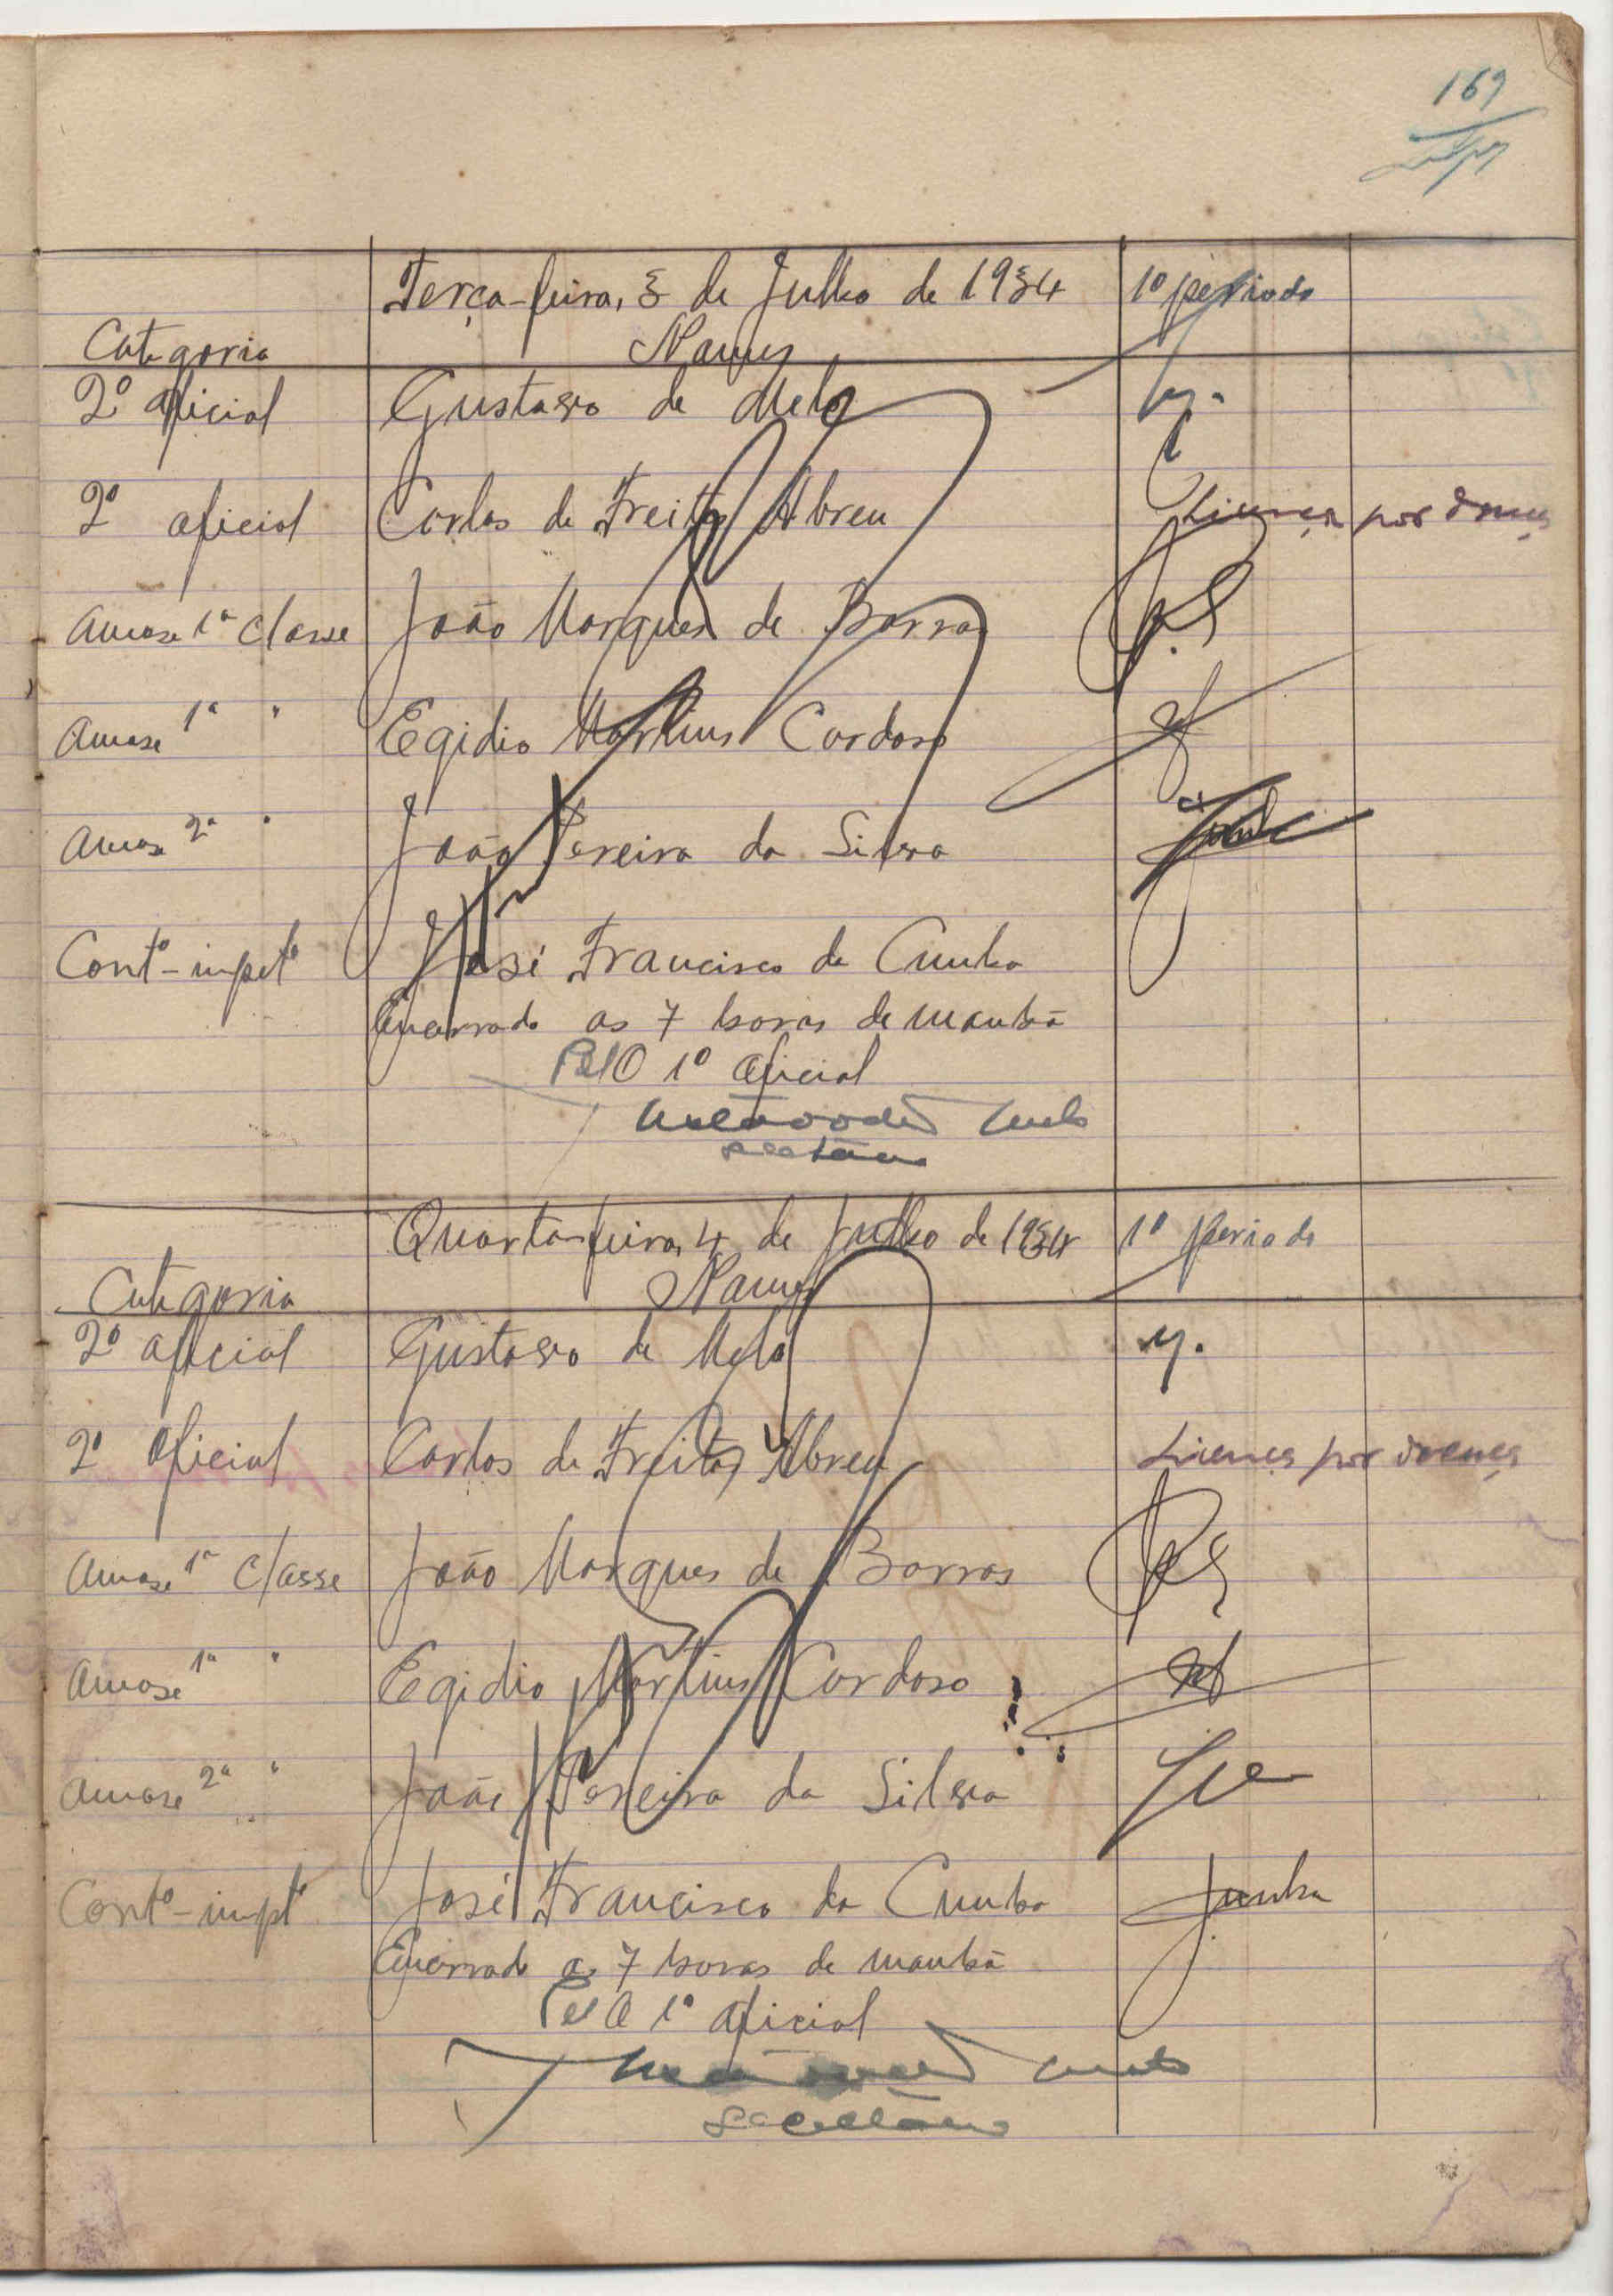 169
Terça-feira, 3 de Julho de 1934 1º período
Categoria Nomes
2º oficial Gustavo de Melo
2º oficial Carlos de Freitas Abreu Licença por doença
1ª classe João Marques de Barros
1ª " Egidio Martins Cardoso
2ª " João Pereira da Silva
Contº-impetº José Francisco da Cunha
Encerrado as 7 horas da manhã
Pel O 1º oficial
Quarta-feira, 4 de Julho de 1934 1º período
Categoria Nomes
2º oficial Gustavo de Melo
2º oficial Carlos de Freitas Abreu Licença por doença
1ª classe João Marques de Barros
1ª " Egidio Martins Cardoso
2ª " João Pereira da Silva
Contº-imptº José Francisco da Cunha Cunha
Encerrado as 7 horas da manhã
Pel O 1º oficial